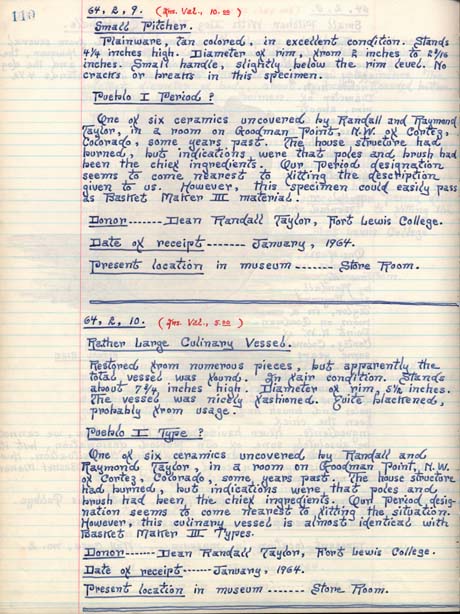 110
64, 2, 9. (Ins. Val., 10.00)
Small Pitcher.
Plainware, tan colored, in excellent condition. Stands
4 1/4 inches high. Diameter of rim, from 2 inches to
inches. Small handle, slightly below the rim level. No
cracks or breaks in this specimen.
Pueblo I Period ?
One of six ceramics uncovered by Randall and Raymond
Taylor, in a room on Goodman Point, N.W. of Cortez,
Colorado, some years past. The house structure had
burned, but indications were that poles and brush had
been the chief ingredients. Our Period designation
seems to come nearest to fitting the description
given to us. However, this specimen could easily pass
as Basket Maker III material.
Donor ------ Dean Randall Taylor, Fort Lewis College.
Date of receipt ------- January, 1964.
Present location in museum ------- Store Room.
64, 2, 10. (Ins. Val., 5.00)
Rather Large Culinary Vessel.
Restored from numerous pieces, but apparently the
total vessel was found. In fair condition. Stands
about 7 3/4 inches high. Diameter of rim, 5 1/2 inches.
The vessel was nicely fashioned. Quite blackened,
probably from usage.
Pueblo I Type ?
One of six ceramics uncovered by Randall and
Raymond Taylor, in a room on Goodman Point, N.W.
of Cortez, Colorado, some years past. The house structure
had burned, but indications were that poles and
brush had been the chief ingredients. Our Period desig-
nation seems to come nearest to fitting the situation.
However, this culinary vessel is almost identical with
Basket Maker III Types.
Donor ------ Dean Randall Taylor, Fort Lewis College.
Date of receipt ------ January, 1964.
Present location in museum ------ Store Room.